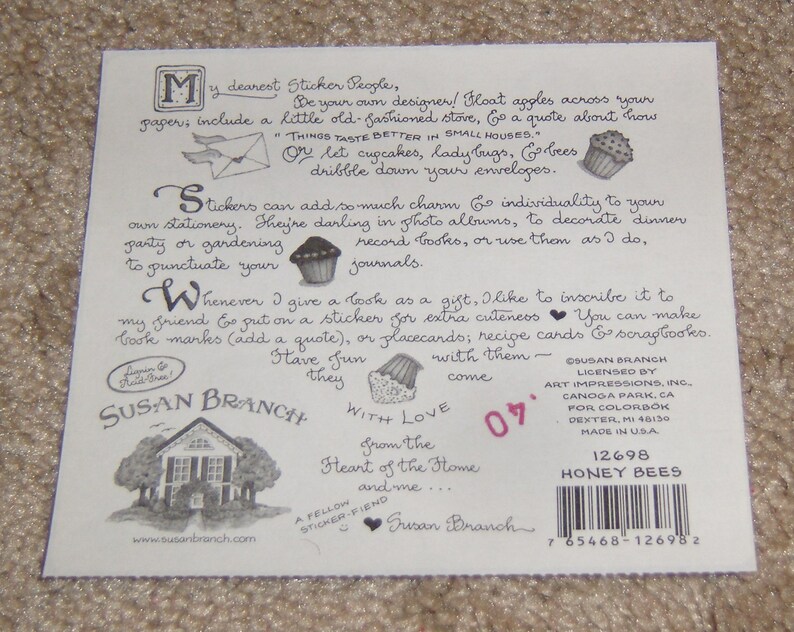 My dearest Sticker People,
Be your own designer! Float apples across your
paper; include a little old-fashioned stove, & a quote about how
"THINGS TASTE BETTER IN SMALL HOUSES."
Or let cupcakes, ladybugs, & bees
dribble down your envelopes.
Stickers can add so much charm & individuality to your
own stationery. They're darling in photo albums, to decorate dinner
party or gardening record books, or use them as I do,
to punctuate your journals.
Whenever I give a book as a gift, I like to inscribe it to
my friend & put on a sticker for extra cuteness ♥ You can make
book marks (add a quote), or placecards; recipe cards & scrapbooks.
Have fun with them ~
they come
WITH LOVE
from the
Heart of the Home
and me ...
A FELLOW
STICKER-FIEND
♥ Susan Branch
Lignin &
Acid-Free!
SUSAN BRANCH
www.susanbranch.com
.40
©SUSAN BRANCH
LICENSED BY
ART IMPRESSIONS, INC.,
CANOGA PARK, CA
FOR COLORBÖK
DEXTER, MI 48130
MADE IN U.S.A.
12698
HONEY BEES
7 65468-12698 2